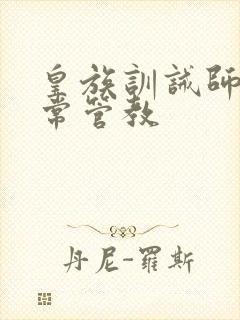 皇族訓誡師
常管教
丹尼-羅斯